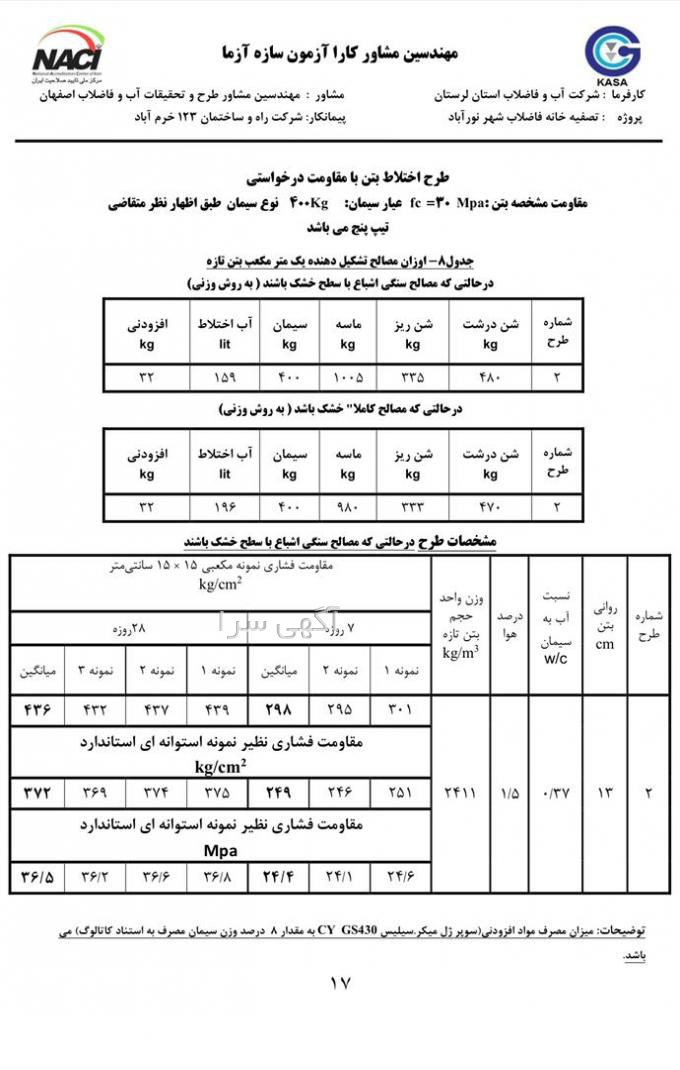 NACI
National Accreditation Center of Iran
مرکز ملی تایید صلاحیت ایران
مهندسین مشاور کارا آزمون سازه آزما
KASA
کارفرما : شرکت آب و فاضلاب استان لرستان
مشاور : مهندسین مشاور طرح و تحقیقات آب و فاضلاب اصفهان
پروژه : تصفیه خانه فاضلاب شهر نورآباد
پیمانکار: شرکت راه و ساختمان ۱۲۳ خرم آباد
طرح اختلاط بتن با مقاومت درخواستی
مقاومت مشخصه بتن :fc =۳۰ Mpa عیار سیمان: ۴۰۰Kg نوع سیمان طبق اظهار نظر متقاضی
تیپ پنج می باشد
جدول۸- اوزان مصالح تشکیل دهنده یک متر مکعب بتن تازه
درحالتی که مصالح سنگی اشباع با سطح خشک باشند ( به روش وزنی)
شماره طرح شن درشت kg شن ریز kg ماسه kg سیمان kg آب اختلاط lit افزودنی kg
۲ ۴۸۰ ۳۳۵ ۱۰۰۵ ۴۰۰ ۱۵۹ ۳۲
درحالتی که مصالح کاملا" خشک باشد ( به روش وزنی)
شماره طرح شن درشت kg شن ریز kg ماسه kg سیمان kg آب اختلاط lit افزودنی kg
۲ ۴۷۰ ۳۳۳ ۹۸۰ ۴۰۰ ۱۹۶ ۳۲
مشخصات طرح درحالتی که مصالح سنگی اشباع با سطح خشک باشند
شماره طرح روانی بتن cm نسبت آب به سیمان w/c درصد هوا وزن واحد حجم بتن تازه kg/m³
مقاومت فشاری نمونه مکعبی ۱۵ × ۱۵ سانتی‌متر
kg/cm²
۷ روزه ۲۸روزه
آگهی سرا
نمونه ۱ نمونه ۲ میانگین نمونه ۱ نمونه ۲ نمونه ۳ میانگین
۲ ۱۳ ۰/۳۷ ۱/۵ ۲۴۱۱
۳۰۱ ۲۹۵ ۲۹۸ ۴۳۹ ۴۳۷ ۴۳۲ ۴۳۶
مقاومت فشاری نظیر نمونه استوانه ای استاندارد
kg/cm²
۲۵۱ ۲۴۶ ۲۴۹ ۳۷۵ ۳۷۴ ۳۶۹ ۳۷۲
مقاومت فشاری نظیر نمونه استوانه ای استاندارد
Mpa
۲۴/۶ ۲۴/۱ ۲۴/۴ ۳۶/۸ ۳۶/۶ ۳۶/۲ ۳۶/۵
توضیحات: میزان مصرف مواد افزودنی(سوپر ژل میکر.سیلیس CY GS430 به مقدار ۸ درصد وزن سیمان مصرف به استناد کاتالوگ) می
باشد.
۱۷